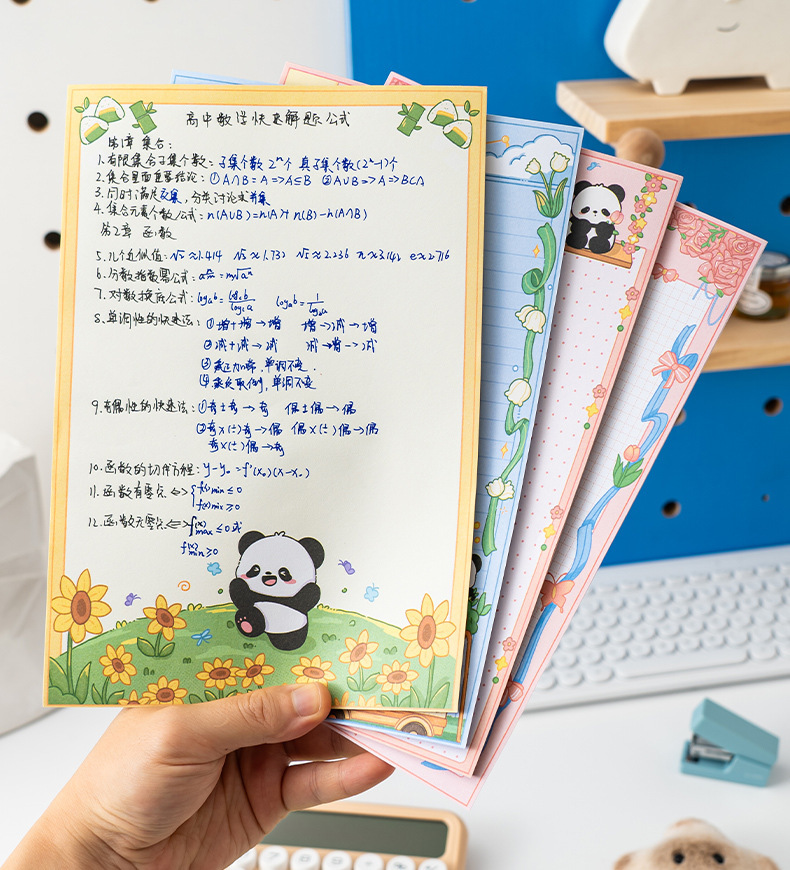 高中数学快速解题公式
第1章 集合:
1.有限集合子集个数:子集个数 2ⁿ个 真子集个数(2ⁿ-1)个
2.集合里面重要结论:①A∩B=A=>A⊆B ②A∪B=>A=>B⊂A
3.同时满足求交集,分类讨论求并集
4.集合元素个数公式:n(A∪B)=n(A)+n(B)-n(A∩B)
第2章 函数
5.几个近似值:√2≈1.414 √3≈1.732 √5≈2.236 π≈3.142 e≈2.716
6.分数指数幂公式:
7.对数换底公式:logₐb=
8.单调性的快速法:①增+增→增 增->减→增
②减+减→减 减→增->减
单调不变.
单调不变
9.奇偶性的快速法:①奇±奇→奇 偶±偶→偶
②奇×(÷)奇→偶 偶×(÷)偶→偶
奇×(÷)偶→奇
10.函数的切线方程:y-y₀=f'(x₀)(x-x₀)
11.函数有零点<=>{f(x)min≤0
f(x)max≥0
12.函数无零点<=>f(x)max≤0或
f(x)min≥0